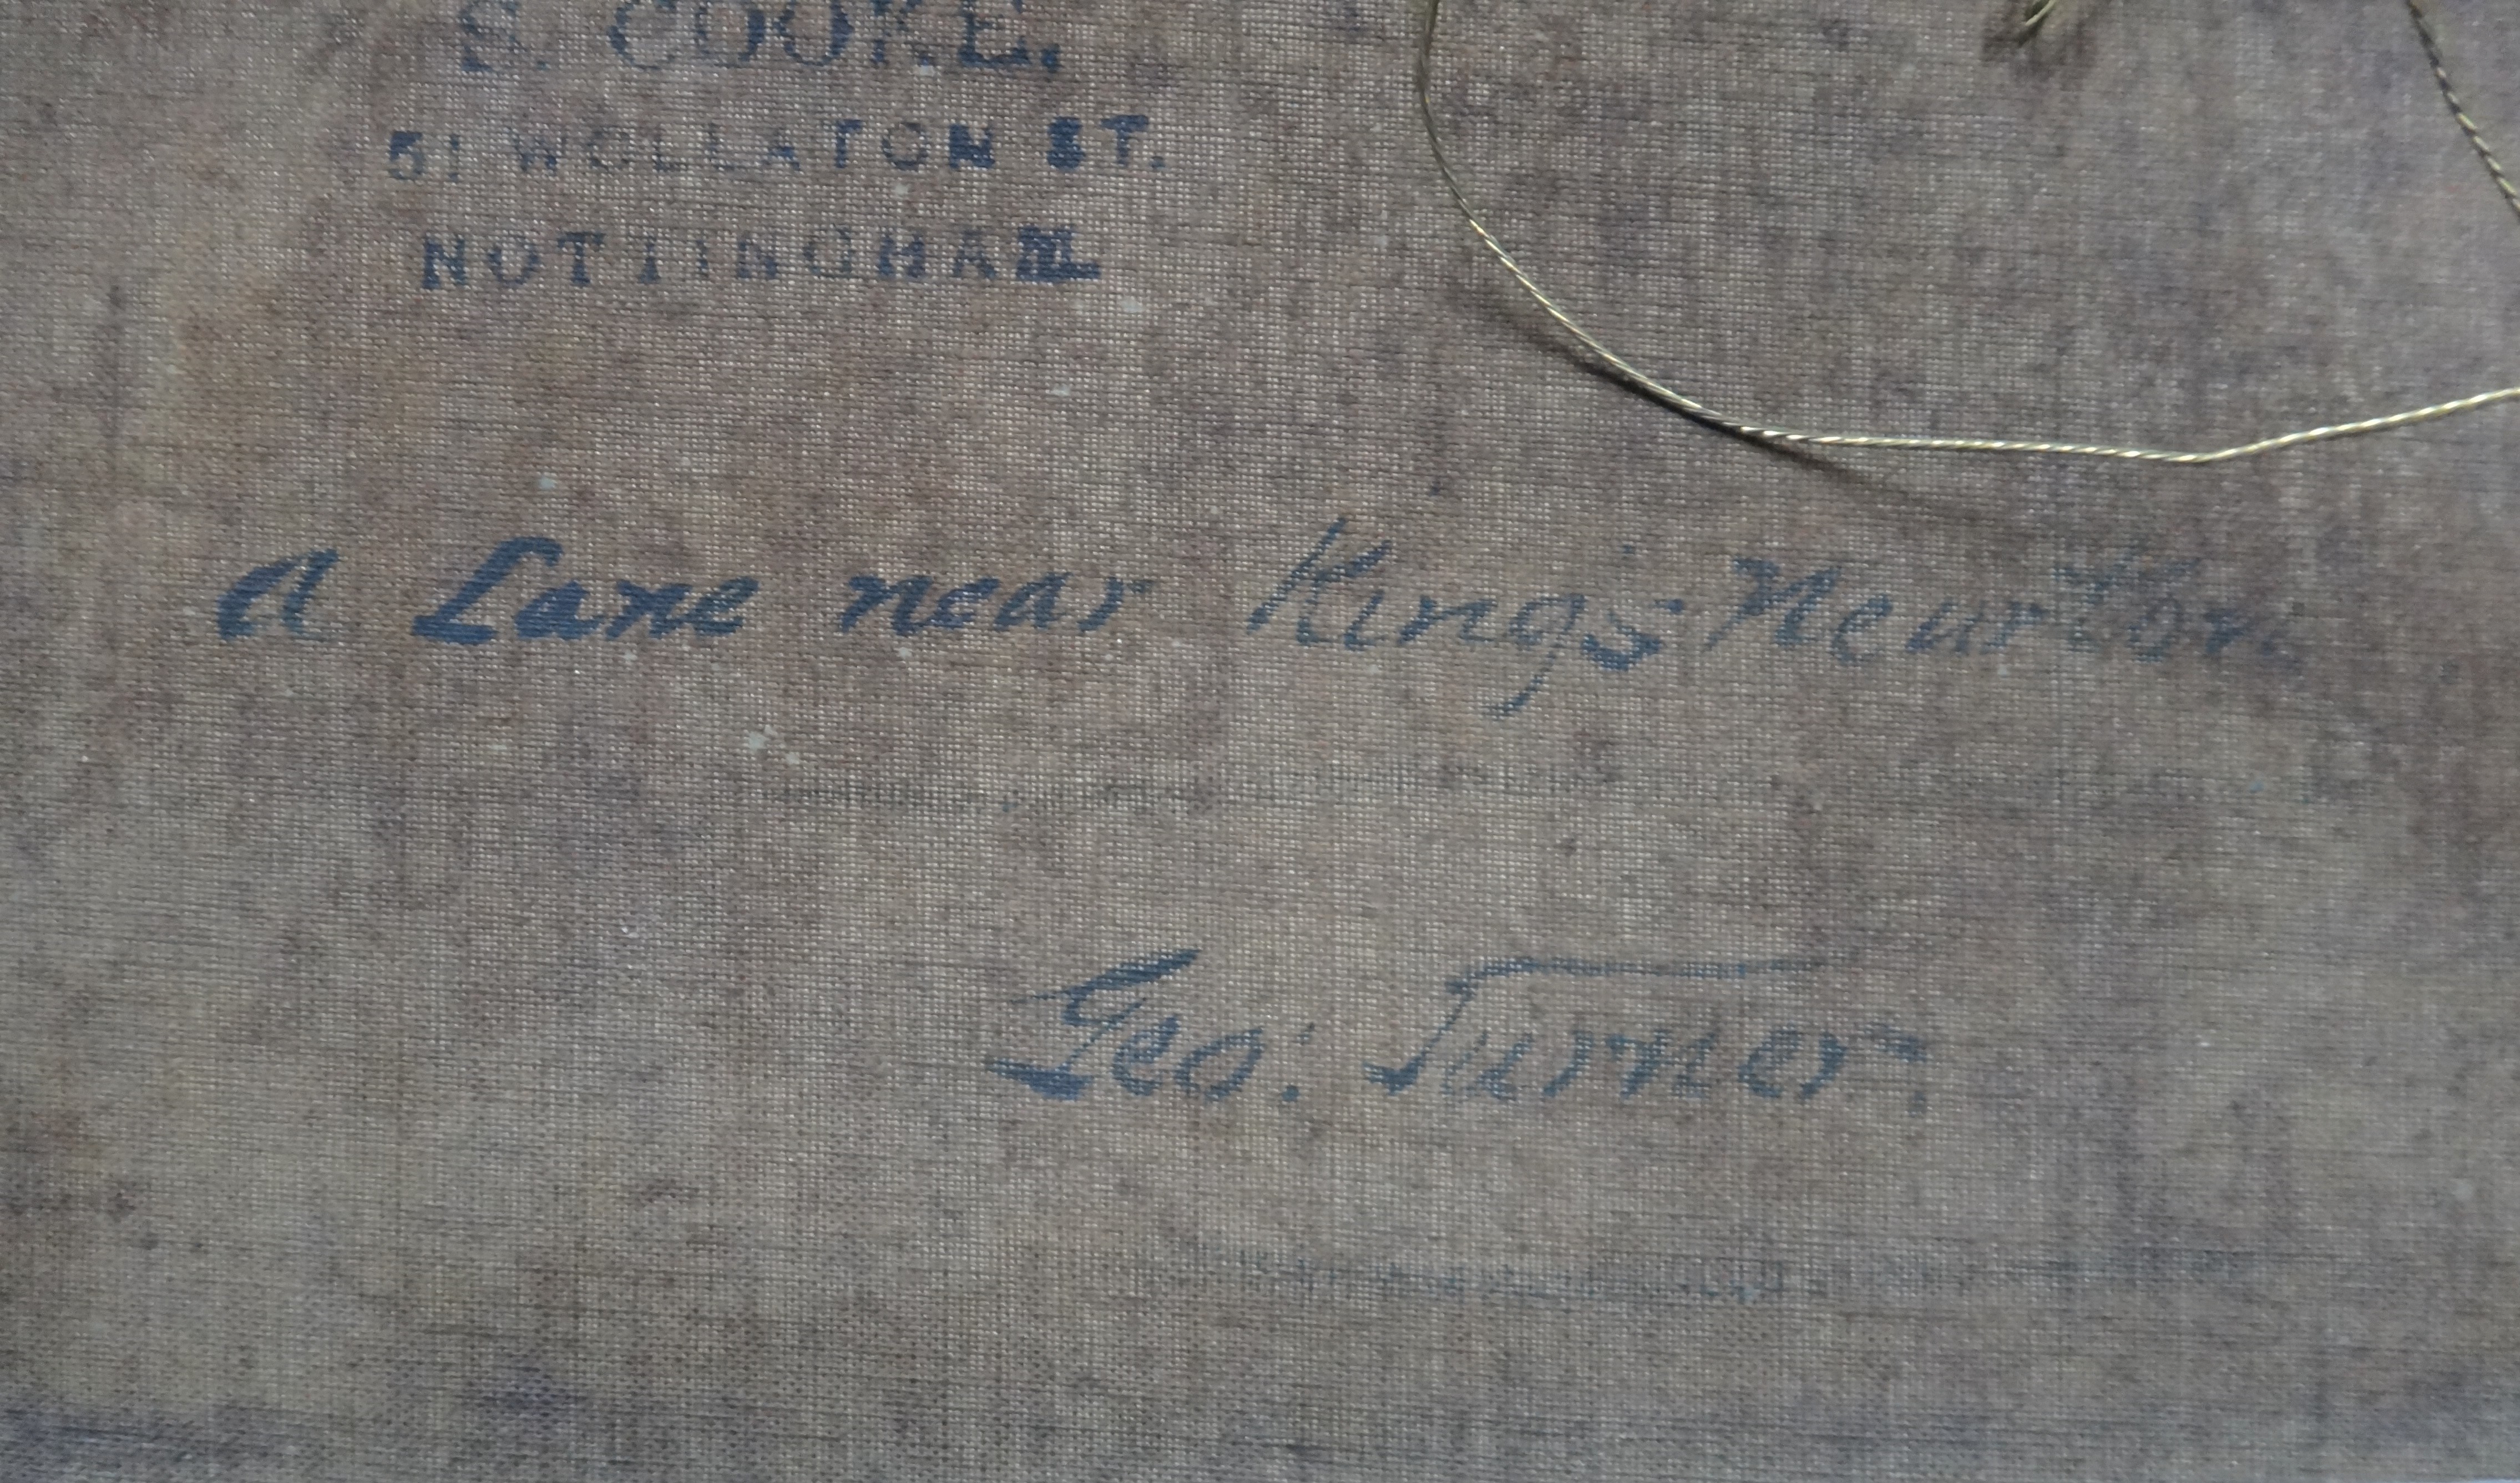 S. COOKE.
51 WOLLATON ST.
NOTTINGHAM
A Lane near King's Newton.
Geo: Turner.